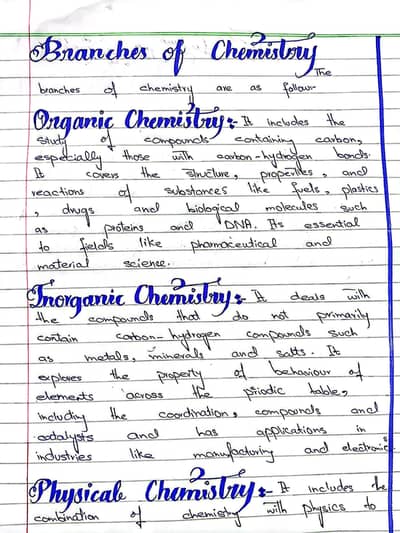 Branches of Chemistry
The
branches of chemistry are as follow
Organic Chemistry:- It includes the
study of compounds containing carbon,
especially those with carbon-hydrogen bonds.
It covers the structure, properties, and
reactions of substances like fuels, plastics
, drugs and biological molecules such
as proteins and DNA. Its essential
to fields like pharmaceutical and
material science.
Inorganic Chemistry:- It deals with
the compounds that do not primarily
contain carbon-hydrogen compounds such
as metals, minerals and salts. It
explores the property of behaviour of
elements across the priodic table,
including the coordination, compounds and
catalysts and has applications in
industries like manufacturing and electronic
Physical Chemistry:- It includes the
combination of chemistry with physics to